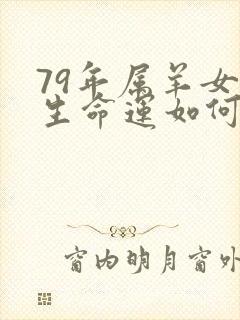 79年属羊女
生命运如何
窗内明月窗外